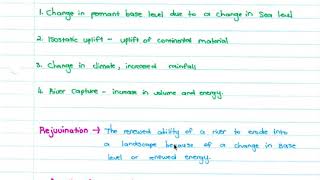 1. Change in permant base level due to a change in Sea level
2. Isostatic uplift - uplift of continental material
3. Change in climate, increased rainfalls
4. River Capture - increase in volume and energy.
Rejuvination → The renewed ability of a river to erode into
a landscape because of a change in base
level or renewed energy.